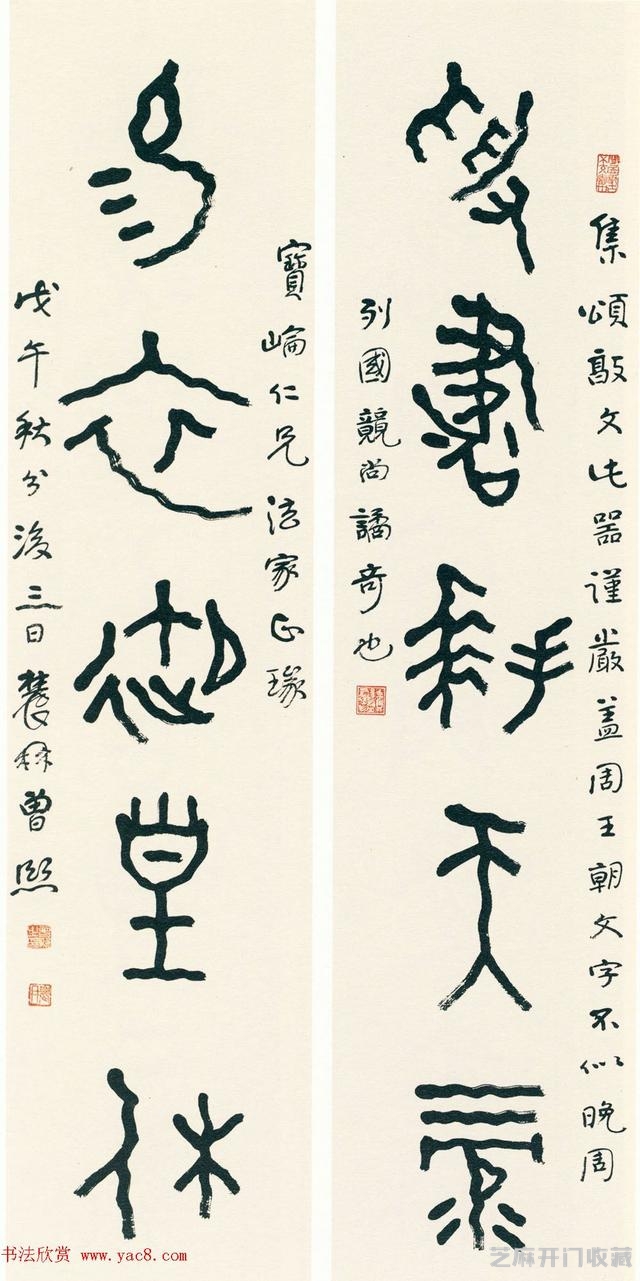 集頌敦文此器謹嚴蓋周王朝文字不似晚周
拜天
列國競尚譎奇也
寶崘仁兄法家正瑑
易御皇休
戊午秋分後三日農髯曾熙
书法欣赏 www.yac8.com
芝麻开门收藏